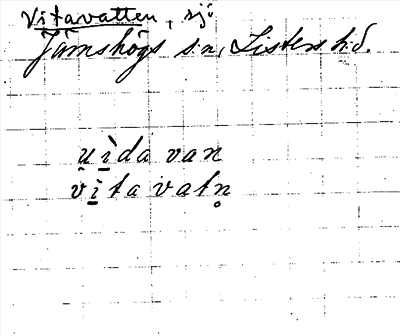 Vitavatten, sjö
Jämshögs s:n, Listers h:d.
u̯ì̲da van
vì̲ta vatn̥